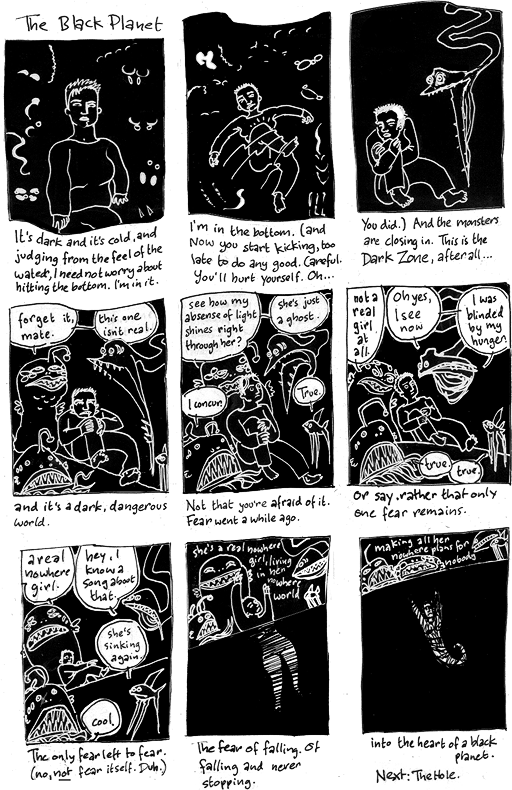 The Black Planet
It's dark and it's cold, and
judging from the feel of the
water, I need not worry about
hitting the bottom. I'm in it.
I'm in the bottom. (and
Now you start kicking, too
late to do any good. Careful.
You'll hurt yourself. Oh...
You did.) And the monsters
are closing in. This is the
Dark Zone, after all...
forget it,
mate.
this one
isn't real.
and it's a dark, dangerous
world.
see how my
absense of light
shines right
through her?
she's just
a ghost.
I concur.
True.
Not that you're afraid of it.
Fear went a while ago.
not a
real
girl
at
all.
Oh yes,
I see
now
I was
blinded
by my
hunger.
true.
true.
Or say, rather that only
one fear remains.
a real
nowhere
girl.
hey, I
know a
song about
that.
she's
sinking
again
cool.
The only fear left to fear.
(no, not fear itself. Duh.)
she's a real nowhere
girl, living
in her
nowhere
world
The fear of falling. Of
falling and never
stopping.
making all her
nowhere plans for
nobody
into the heart of a black
planet.
Next: The Hole.